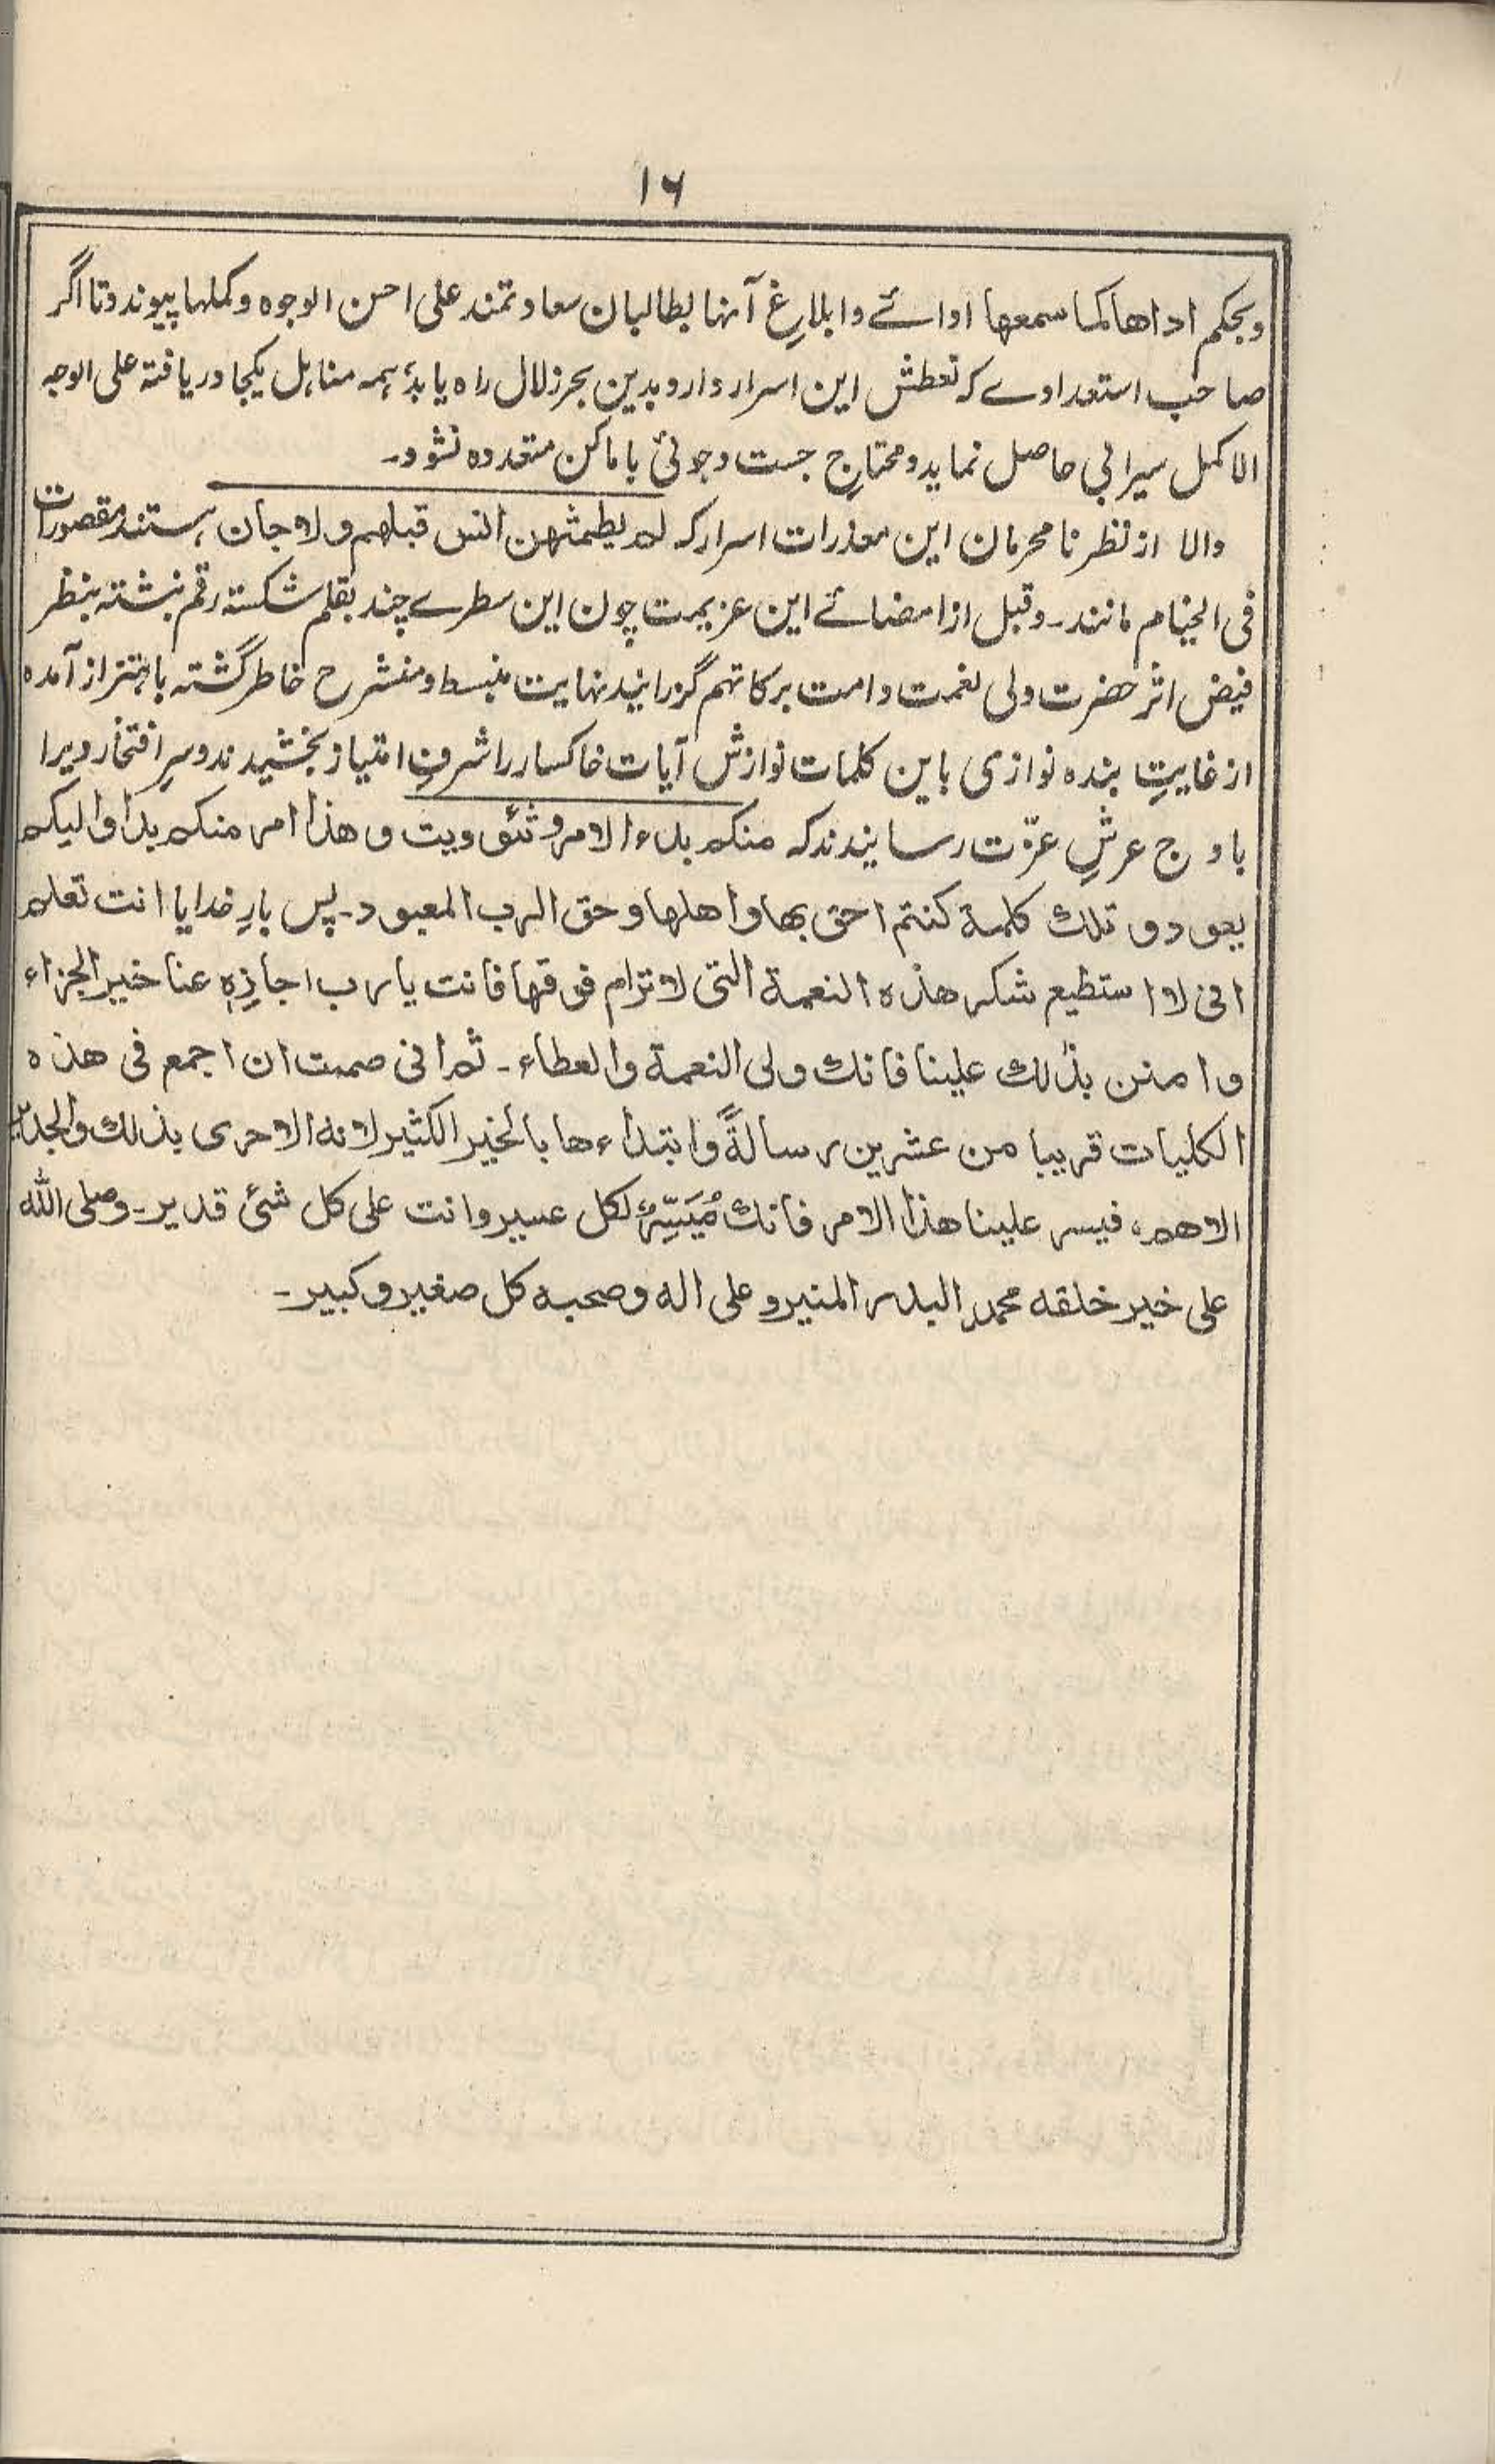 ۱۶
وبحکم اداها کما سمعها اوائے وابلاغِ آنہا بطالبان سعادتمند علی احسن الوجوه وکملها پیوندد تا اگر
صاحب استعدادے کہ تعطش این اسرار دارد بدین بحر زلال راہ یابد ہمہ مناہل یکجا دریافتہ علی الوجہ
الاکمل سیرابی حاصل نماید ومحتاجِ جست وجوئی باماکن متعددہ نشود۔
والا از نظر نامحرمان این مخدرات اسرار کہ لم یطمثهن انس قبلهم ولا جان ہستند مقصورات
فی الخیام مانند۔ وقبل از امضائے این عزیمت چون این سطرے چند بقلم شکستہ رقم نبشتہ بنظر
فیض اثر حضرت ولی نعمت دامت برکاتهم گزرانید نہایت منبسط ومنشرح خاطر گشتہ باہتزاز آمدہ
از غایتِ بندہ نوازی باین کلمات نوازش آیات خاکسار را شرفِ امتیاز بخشیدند وسرِ افتخار ویرا
باوجِ عرشِ عزّت رسانیدند کہ منکم بدء الامر وثنویت وهذا امر منکم بدا والیکم
یعود وتلك کلمة کنتم احق بها واهلها وحق الرب المعبود۔ پس بارِ خدایا انت تعلم
انی لا استطیع شکر هذه النعمة التی لا ترام فوقها فانت یا رب اجازِه عنا خیر الجزاء
وامنن بذٰلك علینا فانك ولی النعمة والعطاء۔ ثم انی صممت ان اجمع فی هذه
الکلیات قریبا من عشرین رسالةً وابتداءها بالخیر الکثیر لانه الاحری بذلك والجدیر
الاهم، فیسر علینا هذا الامر فانك مُیَسِّرٌ لکل عسیر وانت علی کل شئ قدیر۔ وصلی اللّٰه
علی خیر خلقه محمد البدر المنیر وعلی اله وصحبه کل صغیر وکبیر۔